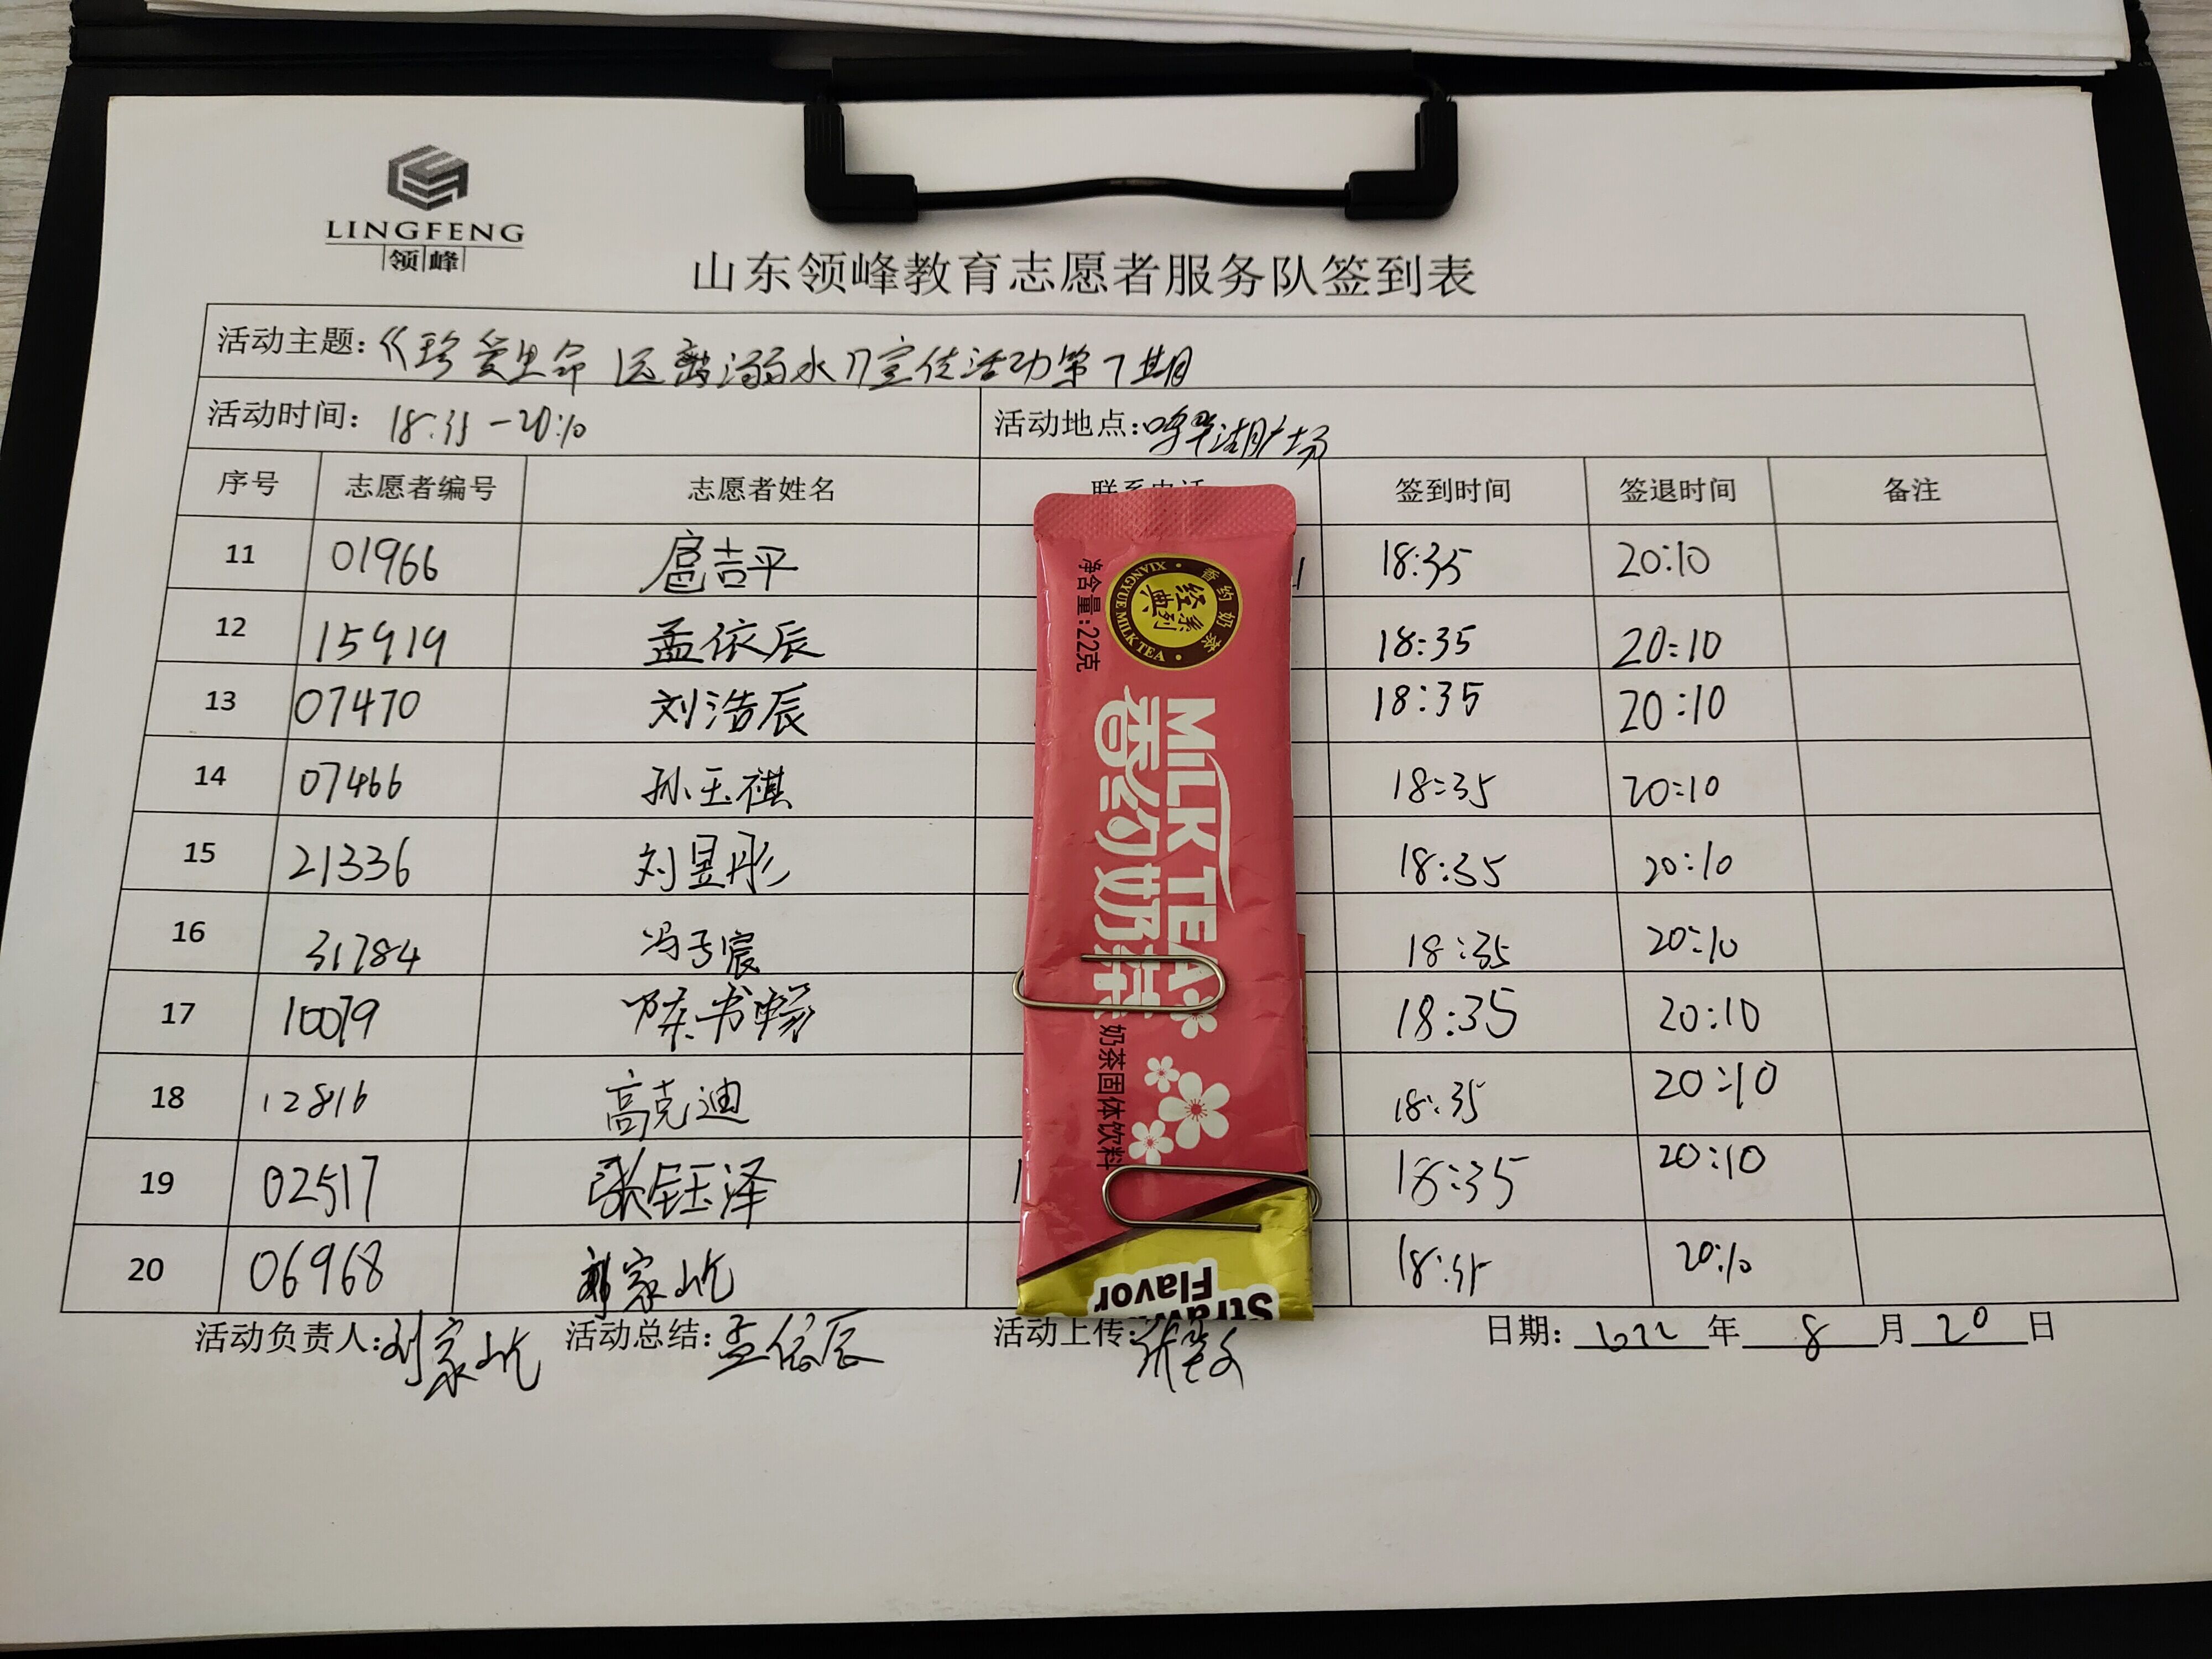 LINGFENG
领峰
山东领峰教育志愿者服务队签到表
活动主题:《珍爱生命 远离溺水》宣传活动第7期
活动时间: 18:35-20:10 活动地点: 广场
序号 志愿者编号 志愿者姓名 联系电话 签到时间 签退时间 备注
11 01966 扈吉平 18:35 20:10
12 15919 孟依辰 18:35 20:10
13 07470 刘浩辰 18:35 20:10
14 07466 孙玉祺 18:35 20:10
15 21336 刘昱彤 18:35 20:10
16 31784 冯子宸 18:35 20:10
17 10079 陈书畅 18:35 20:10
18 12816 高克迪 18:35 20:10
19 02517 张钰泽 18:35 20:10
20 06968 刘家屹 18:35 20:10
活动负责人:刘家屹 活动总结:孟依辰 活动上传: 日期: 年 8 月 20 日
经典系列
香约奶茶
XIANGYUE MILK TEA
净含量:22克
MILK TEA
香约奶茶
奶茶固体饮料
Straw
Flavor